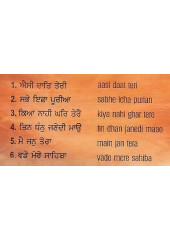 1. ਐਸੀ ਦਾਤਿ ਤੇਰੀ aasi daat teri
2. ਸਭੇ ਇਛਾ ਪੂਰੀਆ sabhe idha purian
3. ਕਿਆ ਨਾਹੀ ਘਰਿ ਤੇਰੈ kiya nahi ghar tere
4. ਤਿਨ ਧੰਨੁ ਜਣੇਦੀ ਮਾਉ tin dhan janedi maao
5. ਮੈ ਜਨੁ ਤੇਰਾ main jan tera
6. ਵਡੇ ਮੇਰੇ ਸਾਹਿਬਾ vade mere sahiba